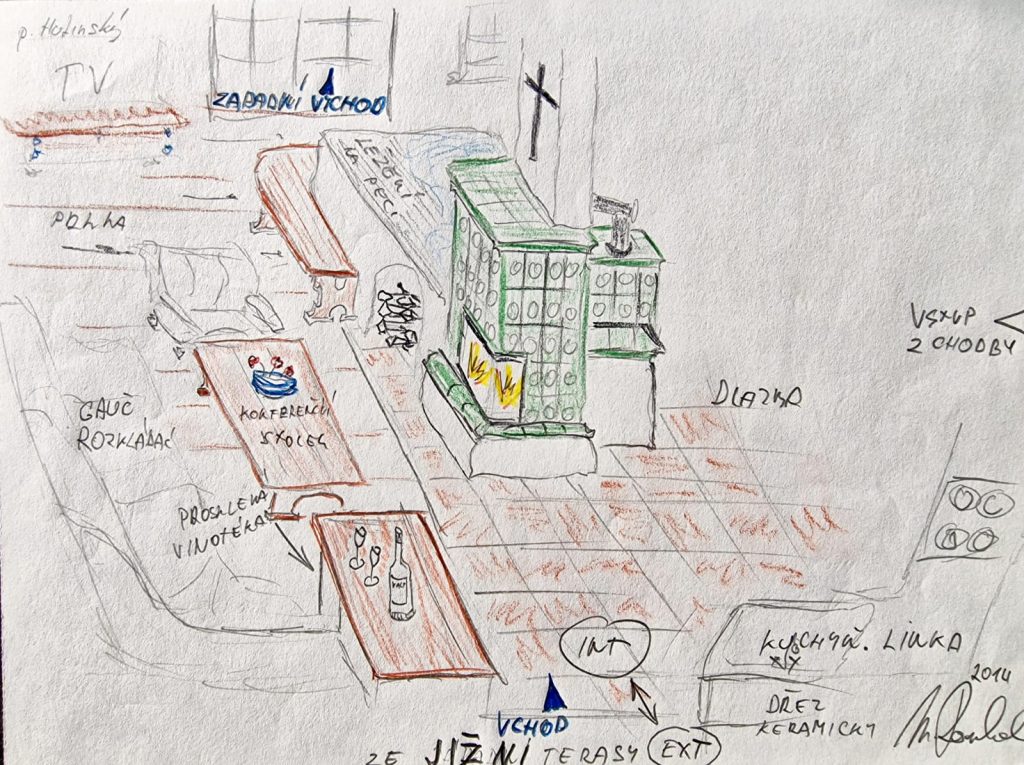 p. Hutinský
TV
ZÁPADNÍ VÝCHOD
LEŽENÍ
NA PECI
POLKA
VSTUP
Z CHODBY
DLAŽBA
GAUČ
ROZKLÁDAC
KONFERENČNÍ
STOLEK
PROSKLENÁ
VINOTÉKA
INT
KUCHYŇ. LINKA
2014
DŘEZ
KERAMICKÝ
VCHOD
ZE JIŽNÍ TERASY
EXT